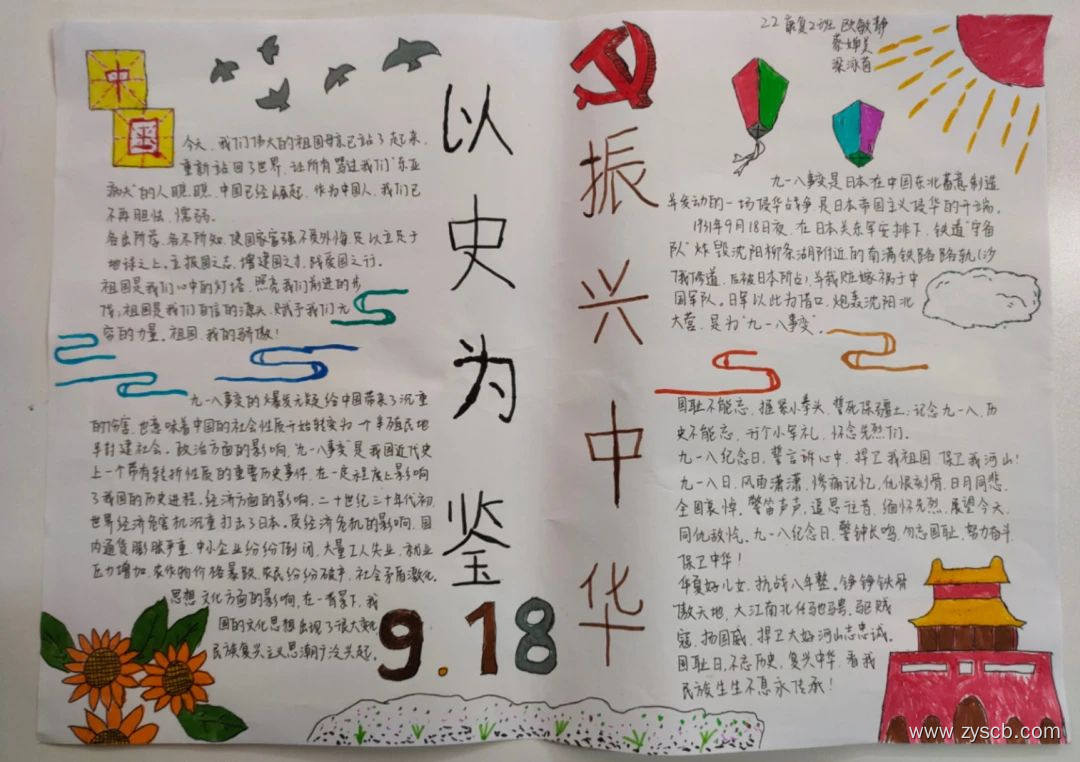 中
国
今天，我们伟大的祖国母亲已站了起来，
重新站回了世界，让所有骂过我们"东亚
病夫"的人瞧瞧，中国已经崛起，作为中国人，我们已
不再胆怯、懦弱。
各出所学，各尽所知，使国家富强不受外侮，足以立足于
地球之上。立报国之志，增建国之才，践爱国之行。
祖国是我们心中的灯塔，照亮我们前进的步
伐，祖国是我们自信的源头，赋予我们无
穷的力量。祖国，我的骄傲！
九一八事变的爆发无疑给中国带来了沉重
的伤害，也意味着中国的社会性质开始转变为一个半殖民地
半封建社会。政治方面的影响，"九一八事变"是我国近代史
上一个带有转折性质的重要历史事件，在一定程度上影响
了我国的历史进程，经济方面的影响，二十世纪三十年代初，
世界经济危机沉重打击了日本，受经济危机的影响，国
内通货膨胀严重，中小企业纷纷倒闭，大量工人失业，就业
压力增加，农作物价格暴跌，农民纷纷破产，社会矛盾激化。
思想文化方面的影响，在一背景下，我
国的文化思想出现了很大变化
民族复兴主义思潮广泛兴起。
以史为鉴
9.18
振兴中华
22康复2班 欧敏静
蔡婵美
梁泳茵
九一八事变是日本在中国东北蓄意制造
并发动的一场侵华战争，是日本帝国主义侵华的开端。
1931年9月18日夜，在日本关东军安排下，铁道"守备
队"炸毁沈阳柳条湖附近的南满铁路路轨（沙
俄修造，后被日本所占），并栽赃嫁祸于中
国军队。日军以此为借口，炮轰沈阳北
大营，是为"九一八事变"。
国耻不能忘，握紧小拳头，誓死保疆土；记念九一八，历
史不能忘，行个小军礼，怀念先烈们。
九一八纪念日，誓言诉心中，捍卫我祖国，保卫我河山！
九一八日，风雨潇潇，惨痛记忆，仇恨刻骨，日月同悲，
全国哀悼，警笛声声，追思往昔，缅怀先烈，展望今天，
同仇敌忾。九一八纪念日，警钟长鸣，勿忘国耻，努力奋斗
保卫中华！
华夏好儿女，抗战八年整。铮铮铁骨
傲天地，大江南北任驰骋，驱贼
寇，扬国威，捍卫大好河山志忠诚。
国耻日，不忘历史，复兴中华，看我
民族生生不息永传承！
www.zyscb.com